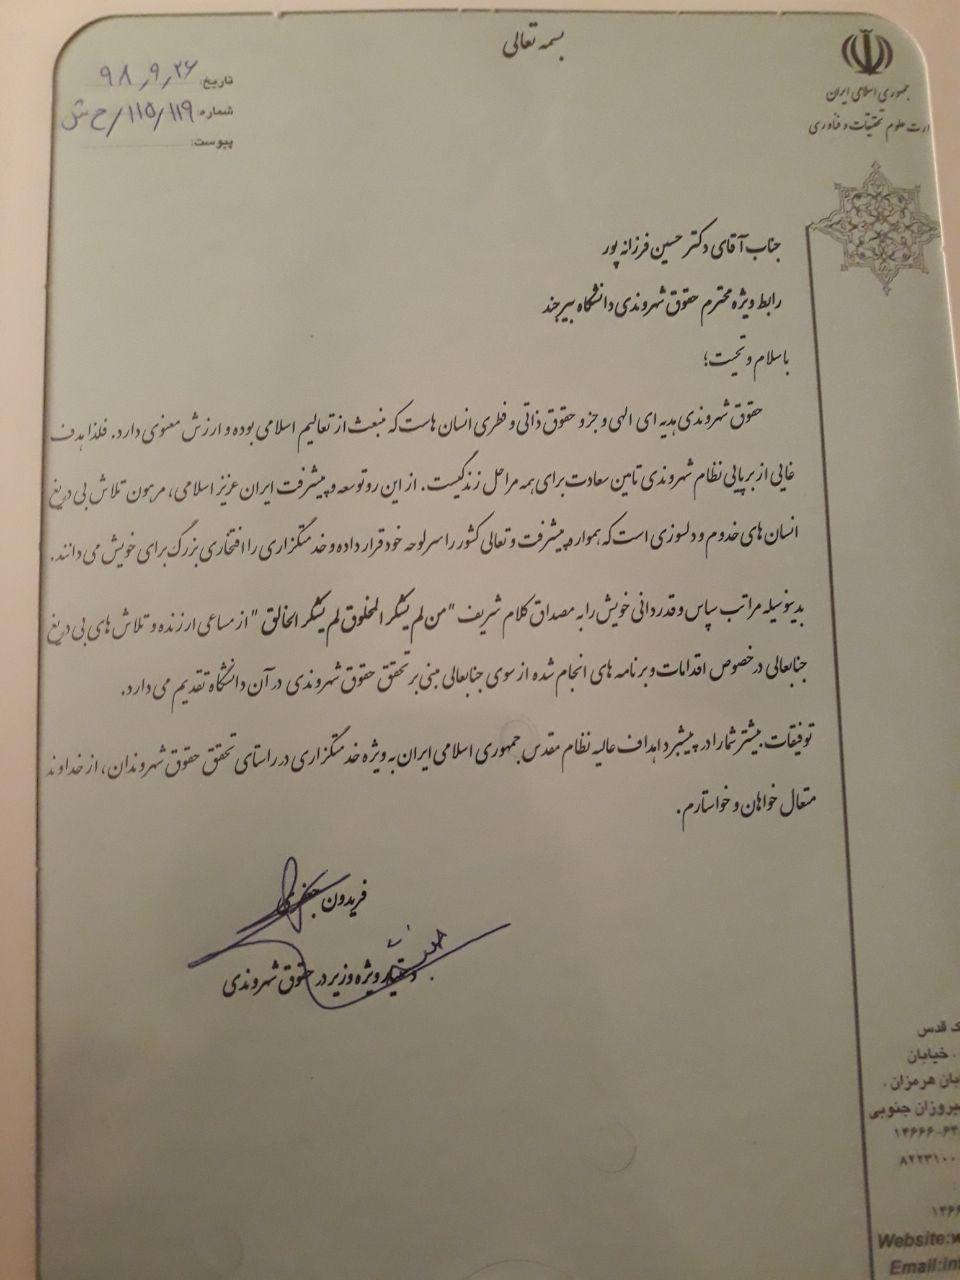 بسمه تعالی
جمهوری اسلامی ایران
ارت علوم تحقیقات و فناوری
تاریخ: ۹۸٫۹٫۲۶
شماره: ۱۱۵/۱۱۹/ح ش
پیوست:
جناب آقای دکتر حسین فرزانه پور
رابط ویژه محترم حقوق شهروندی دانشگاه بیرجند
با سلام و تحیت؛
حقوق شهروندی هدیه ای الهی و جزو حقوق ذاتی و فطری انسان هاست که منبعث از تعالیم اسلامی بوده و ارزش معنوی دارد. فلذا هدف
غایی از برپایی نظام شهروندی تامین سعادت برای همه مراحل زندگیست. از این رو توسعه و پیشرفت ایران عزیز اسلامی، مرهون تلاش بی دریغ
انسان های خدوم و دلسوزی است که همواره پیشرفت و تعالی کشور را سرلوحه خود قرار داده و خدمتگزاری را افتخاری بزرگ برای خویش می دانند.
بدینوسیله مراتب سپاس و قدردانی خویش را به مصداق کلام شریف "من لم یشکر المخلوق لم یشکر الخالق" از مساعی ارزنده و تلاش های بی دریغ
جنابعالی در خصوص اقدامات و برنامه های انجام شده از سوی جنابعالی مبنی بر تحقق حقوق شهروندی در آن دانشگاه تقدیم می دارد.
توفیقات بیشتر شما را در پیشبرد اهداف عالیه نظام مقدس جمهوری اسلامی ایران به ویژه خدمتگزاری در راستای تحقق حقوق شهروندان، از خداوند
متعال خواهان و خواستارم.
فریدون جعفری
دستیار ویژه وزیر در حقوق شهروندی
ک قدس
، خیابان
بان هرمزان ،
یروزان جنوبی
۱۴۶۶۶-۶۴
۸۲۲۳۱۰۰
۱۴۶۶
Website:w
Email:in